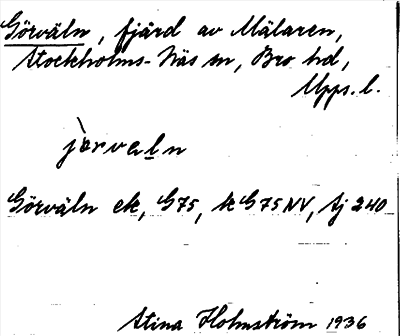 Görväln, fjärd av Mälaren,
Stockholms-Näs sn, Bro hd,
Upps. l.
jòrvaln
Görväln ek, G75, k G75NV, Sj 240
Stina Holmström 1936